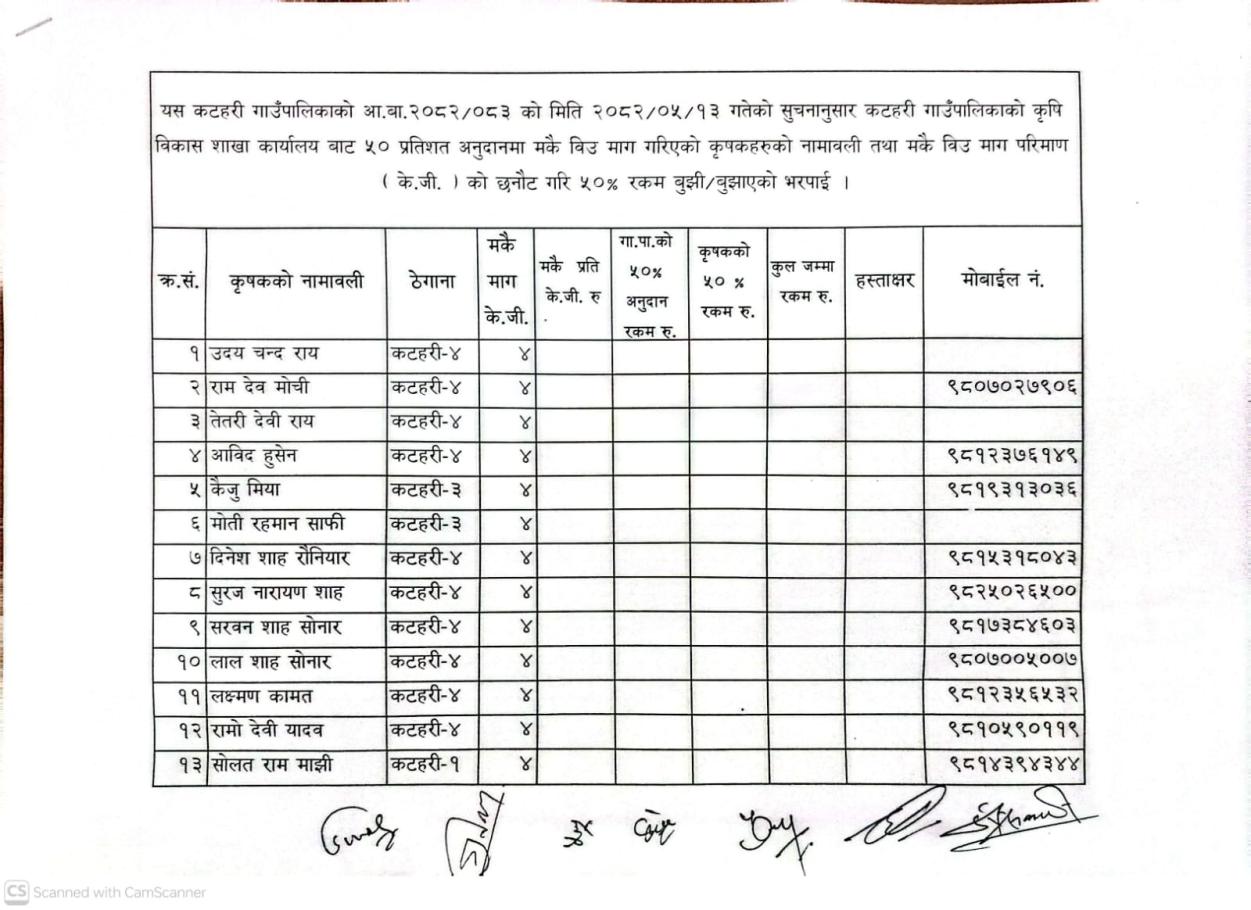 यस कटहरी गाउँपालिकाको आ.बा.२०८२/०८३ को मिति २०८२/०५/१३ गतेको सुचनानुसार कटहरी गाउँपालिकाको कृषि
विकास शाखा कार्यालय बाट ५० प्रतिशत अनुदानमा मकै विउ माग गरिएको कृषकहरुको नामावली तथा मकै विउ माग परिमाण
( के.जी. ) को छनौट गरि ५०% रकम बुझी/बुझाएको भरपाई ।
क्र.सं. कृषकको नामावली ठेगाना मकै माग के.जी. मकै प्रति के.जी. रु गा.पा.को ५०% अनुदान रकम रु. कृषकको ५० % रकम रु. कुल जम्मा रकम रु. हस्ताक्षर मोबाईल नं.
१ उदय चन्द राय कटहरी-४ ४
२ राम देव मोची कटहरी-४ ४ ९८०७०२७९०६
३ तेतरी देवी राय कटहरी-४ ४
४ आविद हुसेन कटहरी-४ ४ ९८१२३७६१४९
५ कैजु मिया कटहरी-३ ४ ९८१९३१३०३६
६ मोती रहमान साफी कटहरी-३ ४
७ दिनेश शाह रौनियार कटहरी-४ ४ ९८१५३१८०४३
८ सुरज नारायण शाह कटहरी-४ ४ ९८२५०२६५००
९ सरवन शाह सोनार कटहरी-४ ४ ९८१७३८४६०३
१० लाल शाह सोनार कटहरी-४ ४ ९८०७००५००७
११ लक्ष्मण कामत कटहरी-४ ४ ९८१२३५६५३२
१२ रामो देवी यादव कटहरी-४ ४ ९८१०५९०११९
१३ सोलत राम माझी कटहरी-१ ४ ९८१४३९४३४४
CS Scanned with CamScanner